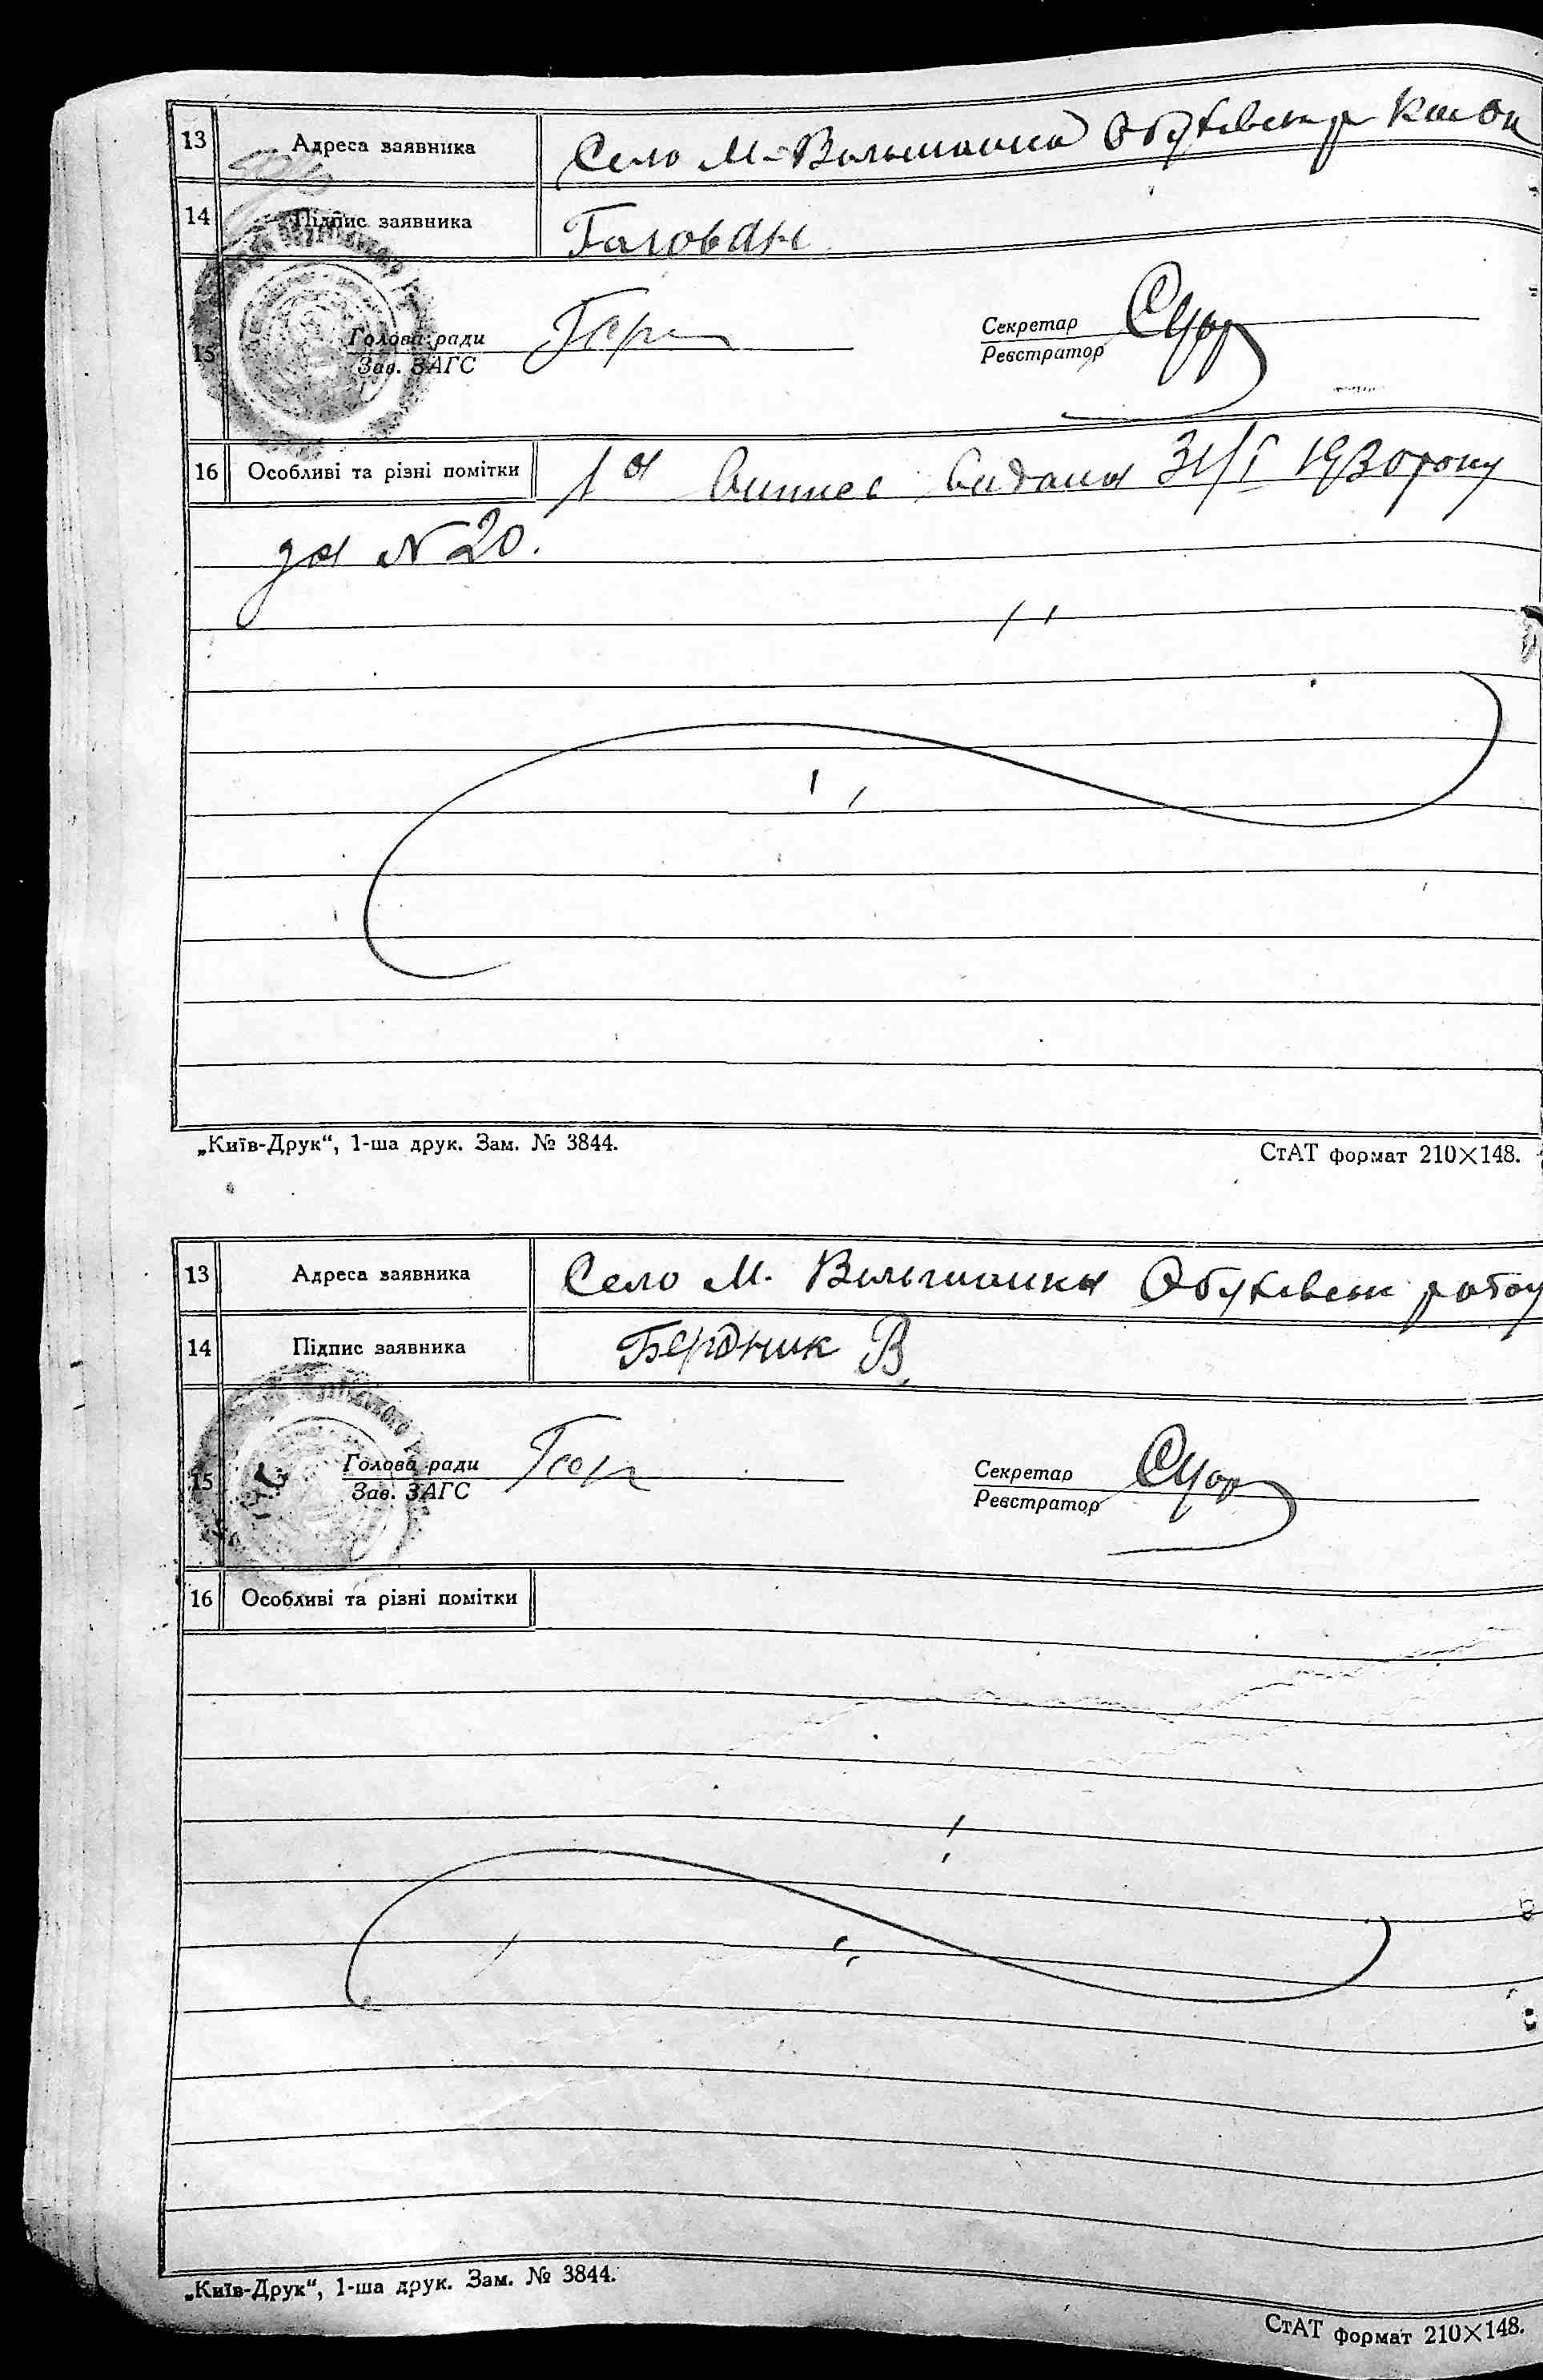 13 Адреса заявника Село М-Вільшанка Обухівськ р
14 Підпис заявника Галован
15 Голова ради Секретар
Зав. ЗАГС Реєстратор
16 Особливі та різні помітки 1а виписа видана 31/I 1930 року
за N 20.
„Київ-Друк“, 1-ша друк. Зам. № 3844. СтАТ формат 210×148.
13 Адреса заявника Село М. Вільшанка Обухівськ району
14 Підпис заявника Бердник В.
15 Голова ради Секретар
Зав. ЗАГС Реєстратор
16 Особливі та різні помітки
„Київ-Друк“, 1-ша друк. Зам. № 3844.
СтАТ формат 210×148.